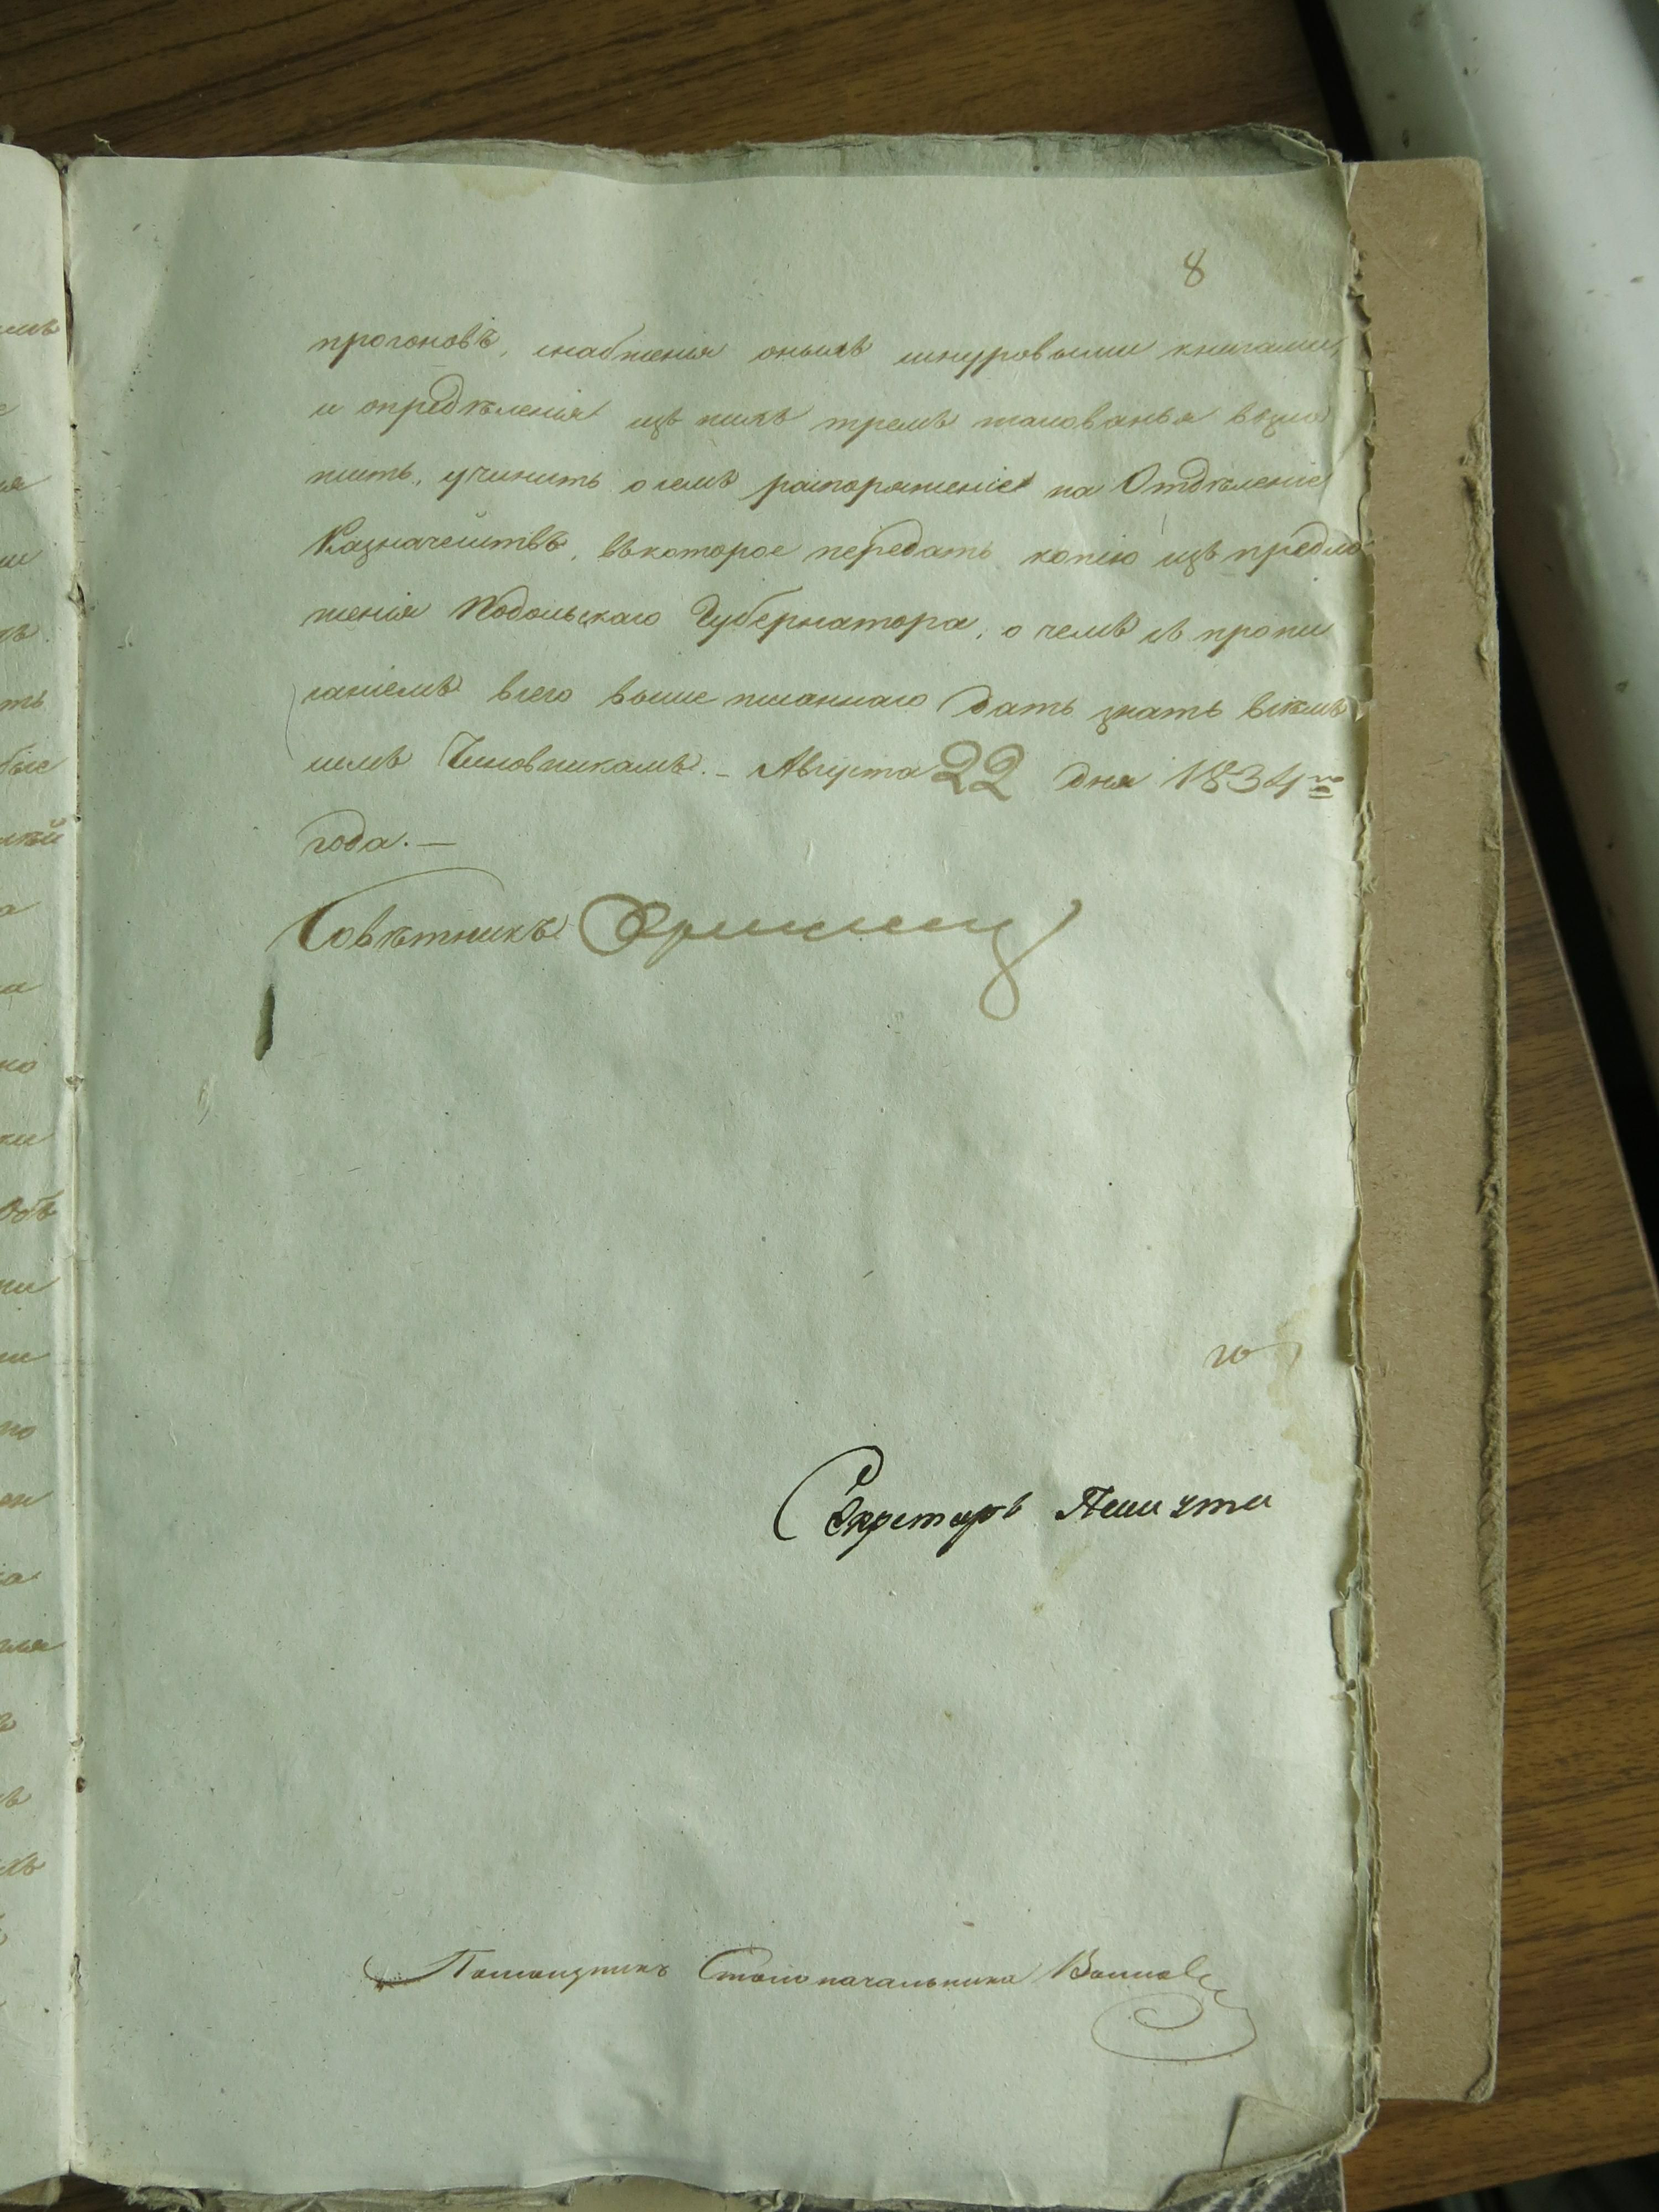 8
прогоновъ, снабженія оныхъ шнуровыми книгами,
и опредѣленія изъ нихъ тремъ жалованья возло
жить, учинить о семъ распоряженіе на Отдѣленіе
Казначействъ, въкоторое передать копію изъ предло
женія Подольскаго Губернатора, о чемъ съ пропи
саніемъ всего выше писаннаго дать знать всѣмъ
симъ Чиновникамъ. – Августа 22 дня 1834го
года. —
Совѣтникъ
Секретарь
Помощникъ Столоначальника